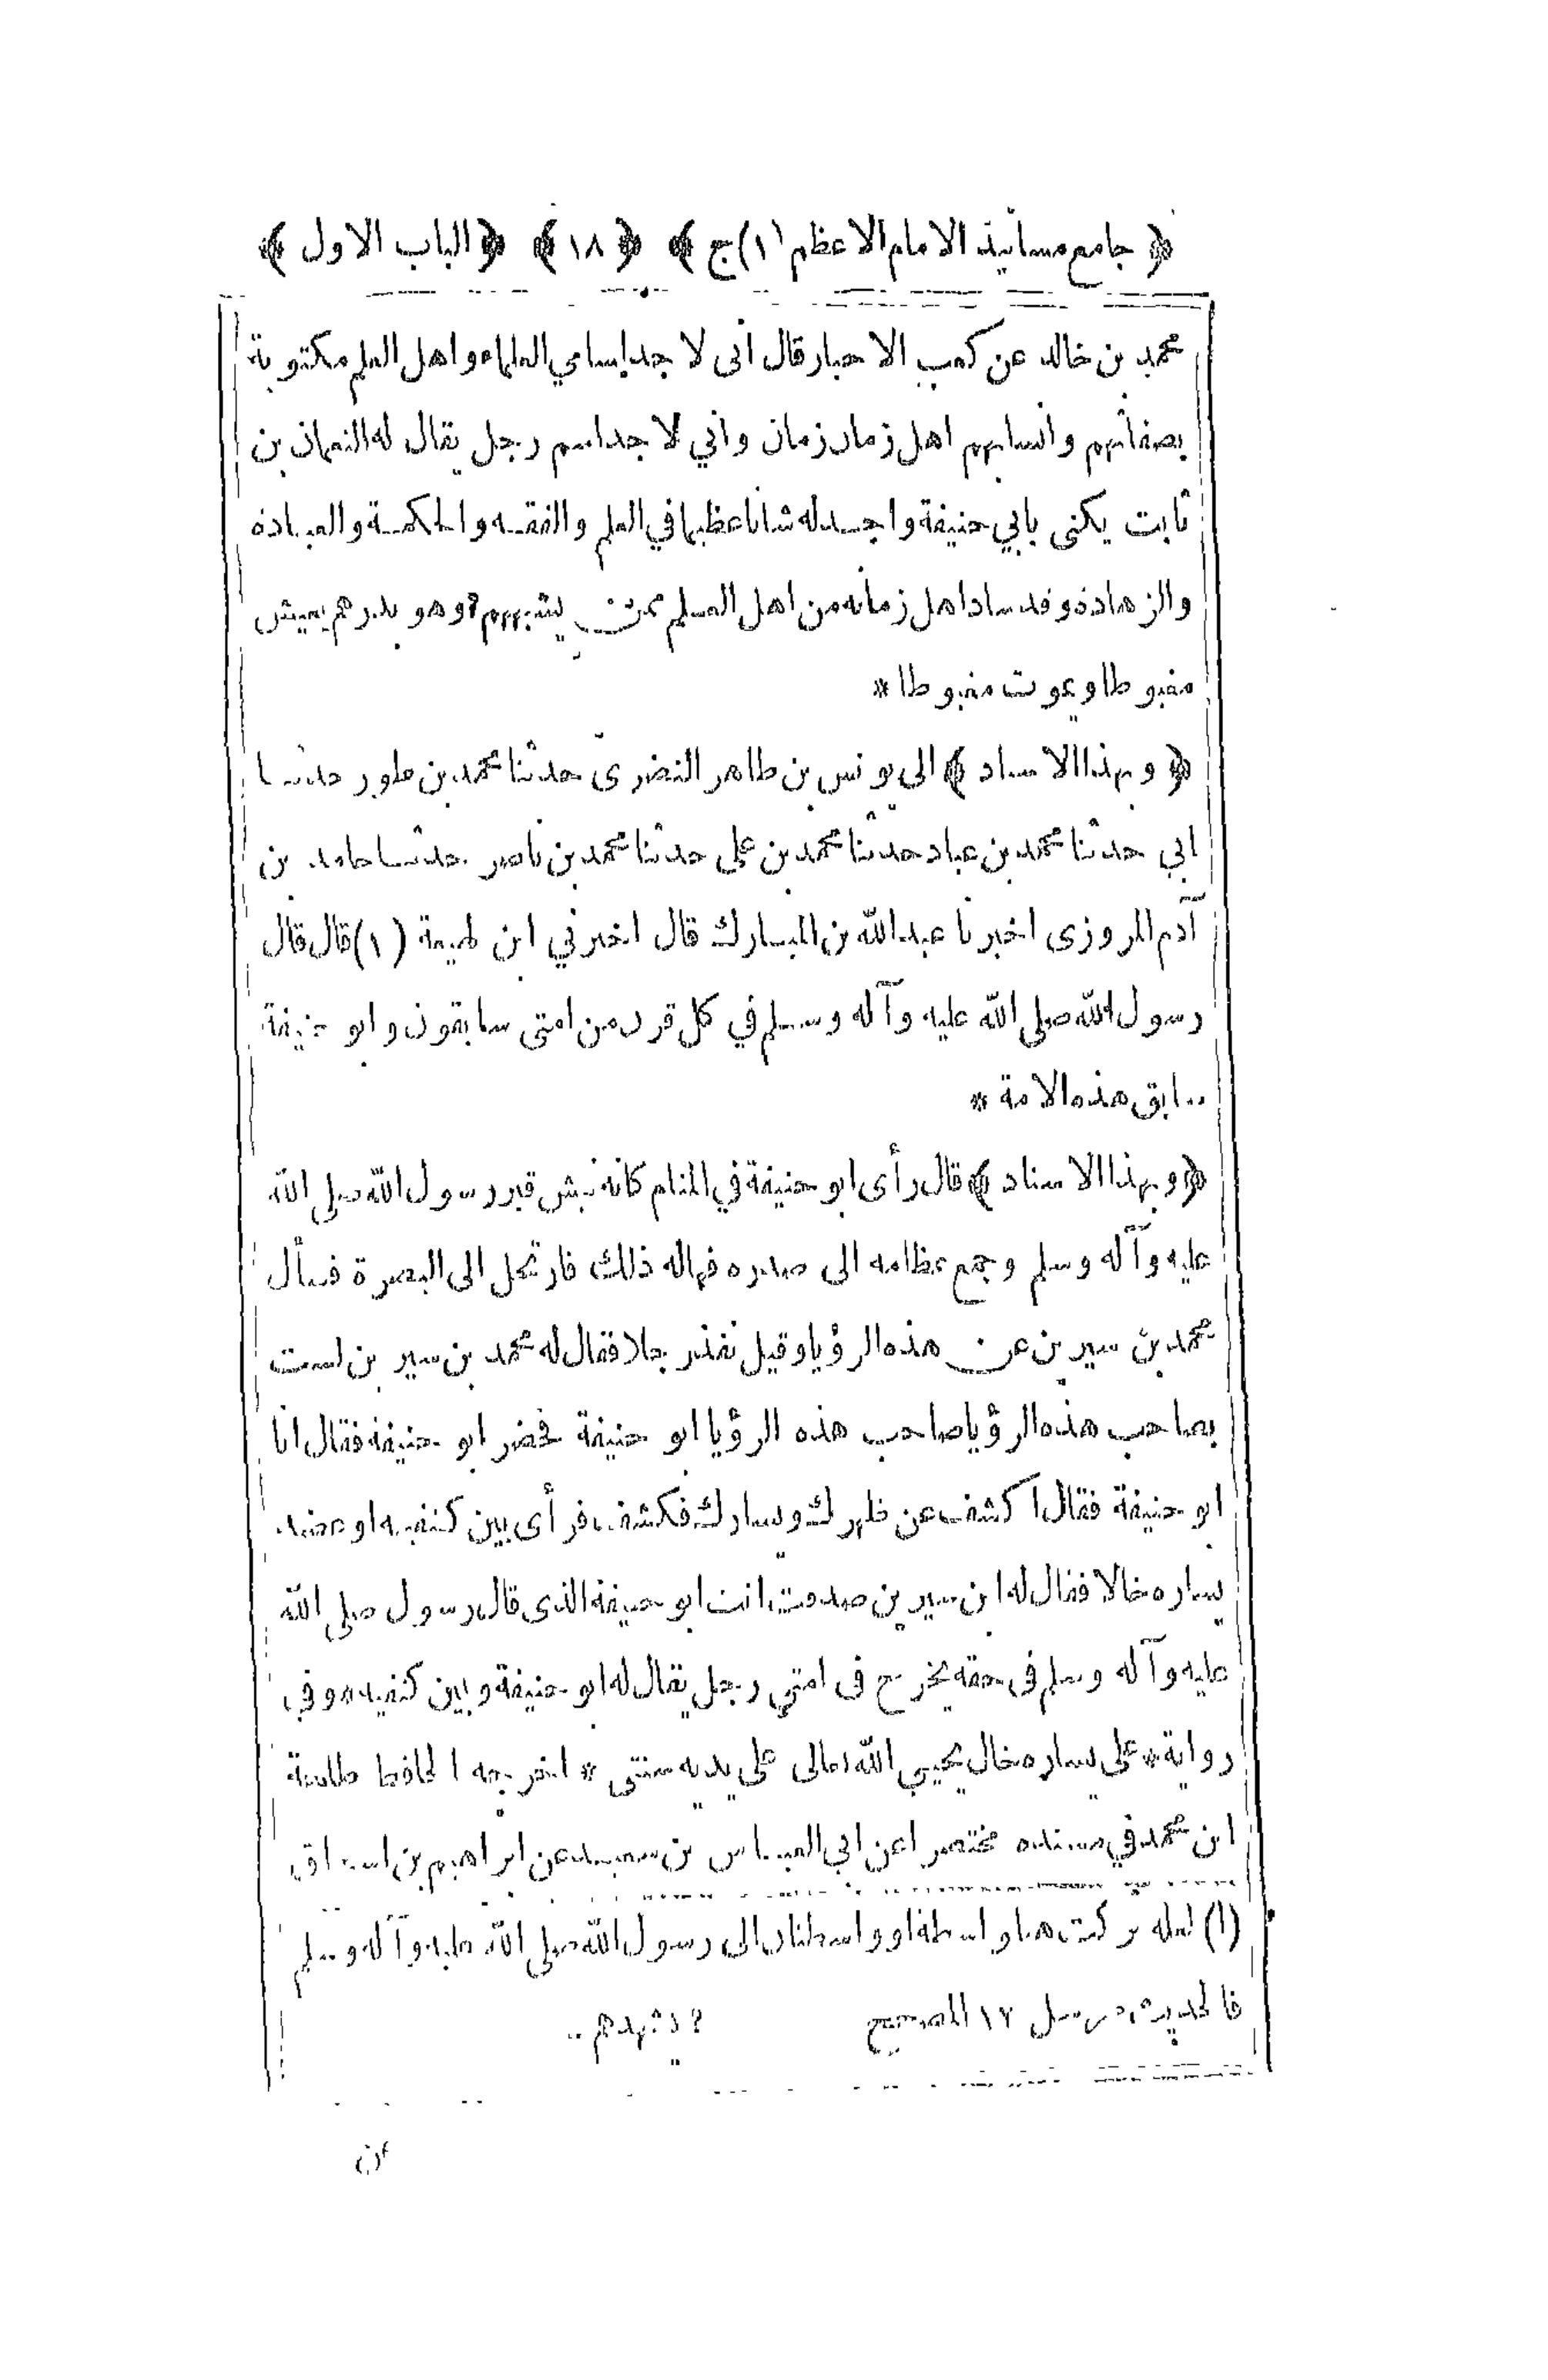 ﴿ جامع مسانيد الامام الاعظم (١) ج ﴾ ﴿ ١٨ ﴾ ﴿ الباب الاول ﴾
محمد بن خالد عن كعب الاحبار قال انى لاجد اسامي العلماء واهل العلم مكتوبة
بصفاتهم وانسابهم اهل زمان زمان واني لاجد اسم رجل يقال له النعمان بن
ثابت يكنى بابي حنيفة واجد له شانا عظيما في العلم والفقه والحكمة والعبادة
والزهادة وقد ساد اهل زمانه من اهل العلم ممن يشبههم ٢ وهو بدرهم يعيش
مغبوطا ويموت مغبوطا *
﴿ وبهذا الاسناد ﴾ الى يونس بن طاهر النضرى حدثنا محمد بن حدثنا
ابي حدثنا محمد بن عباد حدثنا محمد بن على حدثنا محمد بن ناصر حدثنا حامد بن
آدم المروزى اخبرنا عبد الله بن المبارك قال اخبرني ابن لهيعة (١) قال قال
رسول الله صلى الله عليه وآله وسلم في كل قرن من امتى سابقون وابو حنيفة
سابق هذه الامة *
﴿ وبهذا الاسناد ﴾ قال رأى ابو حنيفة في المنام كانه نبش قبر رسول الله صلى الله
عليه وآله وسلم وجمع عظامه الى صدره فهاله ذلك فارتحل الى البصرة فسأل
محمد بن سيرين عن هذه الرؤيا وقيل نفذ رجلا فقال له محمد بن سيرين لست
بصاحب هذه الرؤيا صاحب هذه الرؤيا ابو حنيفة فحضر ابو حنيفة فقال انا
ابو حنيفة فقال اكشف عن ظهرك ويسارك فكشف فرأى بين كتفيه او عضد
يساره خالا فقال له ابن سيرين صدقت انت ابو حنيفة الذى قال رسول صلى الله
عليه وآله وسلم فى حقه يخرج فى امتي رجل يقال له ابو حنيفة وبين كتفيه * وفي
رواية * على يساره خال يحيي الله تعالى على يديه سنتى * اخرجه الحافظ طلحة
ابن محمد في مسنده مختصرا عن ابي العباس بن سعيد عن ابراهيم بن اسحاق
(١) لعله تركت هنا واسطة او واسطتان الى رسول الله صلى الله عليه وآله وسلم
فالحديث مرسل ١٢ المصحح ٢
عن